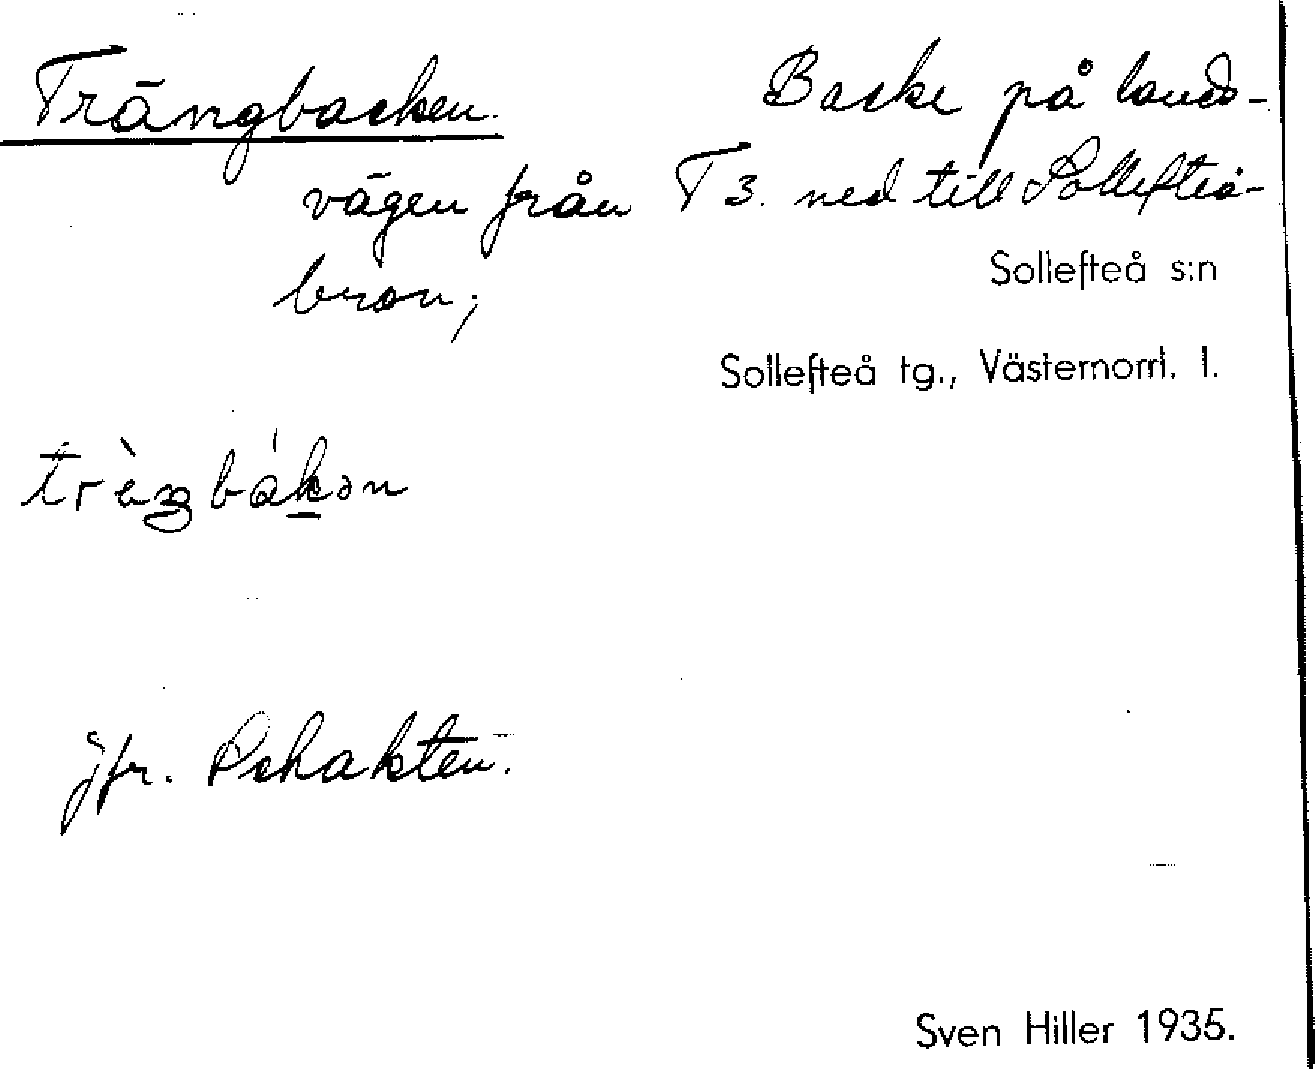 Trängbacken. Backe på lands-
vägen från T 3. ned till Sollefteå-
bron;
Sollefteå s:n
Sollefteå tg., Västernorrl. l.
jfr. Schakten.
Sven Hiller 1935.